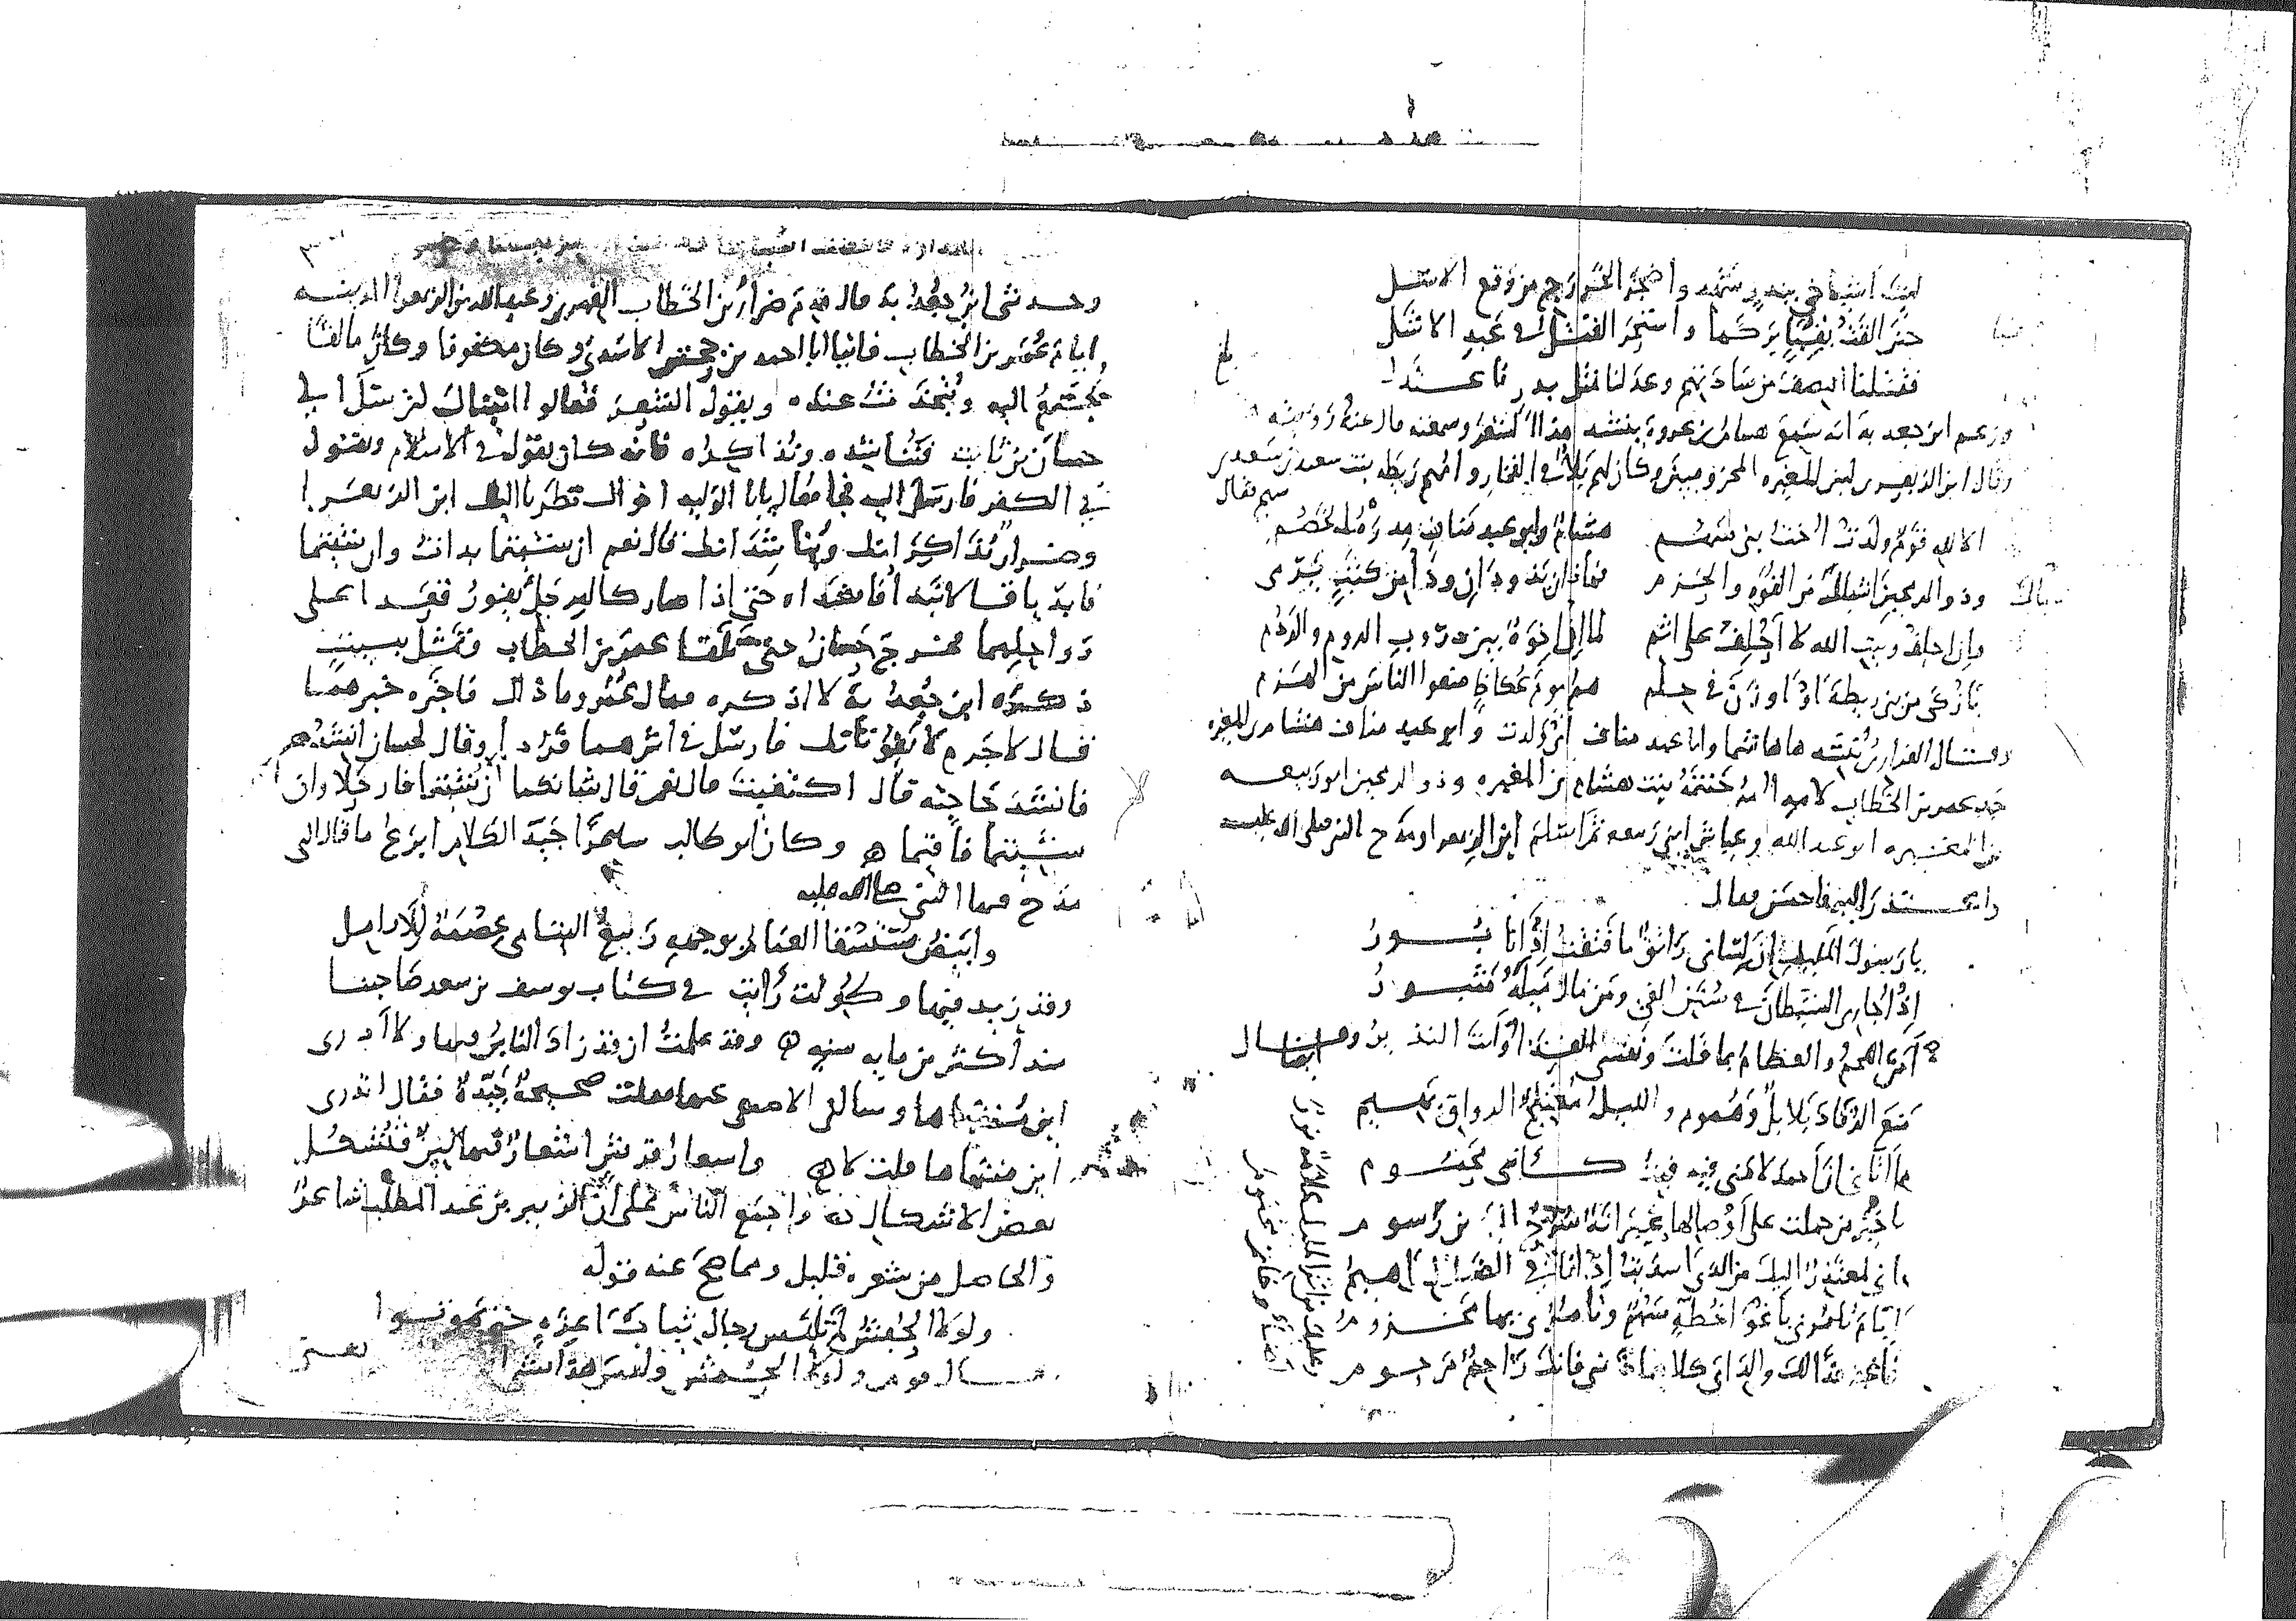 ليت أشياخي ببدر شهدوا ضجر الخزرج من وقع الاسل
حين القت بقباء بركها واستحر القتل في عبد الاشل
فقتلنا النصف من سادتهم وعدلنا مثل بدر فاعتدل
وزعم ابن جعدبه انه سمع هشام بن عروة ينشد هذا الشعر وسمعته
وقال ابن الزبعرى لبنى المغيره المخزوميين وكان لهم بلاء في الفجار وامهم ريطه بنت سعيد بن سعد بن
سهم فقال
الا لله قوم ولدت اخت بنى سهم هشام وابو عبد مناف مدره الخصم
وذو الرمحين اشباك من القوه والحزم فهاذان يذودان وذا من كثب يرمى
وإن احلف وبيت الله لا احلف على اثم لما إن اخوة بين دروب الروم والردم
بازكى من بنى ريطة او اوزن في حلم هم يوم عكاظ منعوا الناس من الهزم
جد عمر بن الخطاب لامه امه حنتمة بنت هشام بن المغيره وذو الرمحين ابو ربيعه
بن المغيره ابو عبد الله وعياش ابنى ربيعه ثم اسلم ابن الزبعرا ومدح النبى صلى الله عليه
واعتذر اليه فاحسن فقال
يا رسول المليك ان لسانى راتق ما فتقت إذ أنا بور
إذ اجارى الشيطان في سنن الغى ومن مال ميله مثبور
آمن اللحم والعظام بما قلت ونفسى الفدا وانت النذير وقال
ايضا
منع الرقاد بلابل وهموم والليل معتلج الرواق بهيم
مما أتانى ان احمد لامنى فيه فبت كأننى محموم
يا خير من حملت على أوصالها عيرانة سرح اليدين رسوم
إني لمعتذر اليك من الذي أسديت إذ انا في الضلال اهيم
أيام تأمرنى بأغوى خطة سهم وتأمرنى بها مخزوم
فاغفر فدا لك والداى كلاهما فانك راحم مرحوم
وعليك من اثر المليك علامة نور
اضاء وخاتم مختوم
وحدثنى ابن جعدبة قال قدم ضرار بن الخطاب الفهرى وعبد الله بن الزبعرا المدينه
ايام عمر بن الخطاب فاتيا ابا احمد بن جحش الاسدى وكان مكفوفا وكان مالفا
يجتمع اليه ويتحدث عنده ويقول الشعر فقالوا اتيناك لترسل الى
حسان بن ثابت فنناشده ونذاكره فانه كان يقول في الاسلام ونقول
في الكفر فارسل اليه فجا فقال يابا الوليد اخواك تطربا اليك ابن الزبعرا
وضرار يذاكرانك ويناشدانك قال نعم ان شئتما بدات وان شئتما
فابديا قالا نبدا فانشداه حتى إذا صار كالمرجل يفور قعدا على
رواحلهما فخرج حسان حتى تلقا عمر بن الخطاب وتمثل ببيت
ذكره ابن جعدبة لا اذكره فقال عمر وما ذاك فاخبره خبرهما
فقال لا جرم لا يفوتانك فارسل في اثرهما فردا وقال لحسان انشدهم
فانشد حاجته قال اكتفيت قال نعم قال شانكما ان شئتما فارحلا وان
شئتما فاقيما ه وكان ابو طالب شاعرا جيد الكلام ابرع ما قال التى
مدح فيها النبى صلى الله عليه
وابيض يستسقا الغمام بوجهه ربيع اليتامى عصمة للارامل
وقد زيد فيها وطولت رأيت في كتاب يوسف بن سعد صاحبنا
منذ أكثر من مايه سنه ه وقد علمت ان قد زاد الناس فيها ولا أدرى
اين منتهاها وسالنى الاصمعى عنها فقلت صحيحة جيدة فقال اتدرى
اين منتهاها قلت لا ه واشعار قريش اشعار فيها لين فتشكل
بعض الاشكال واجمع الناس على أن الزبير بن عبد المطلب شاعر
والحاصل من شعره قليل ومما صح عنه قوله
ولولا الحبش لم تلبس رجال ثياب أعزة حتى يموتوا
قال قوم ولولا الحمش وليس هذا بشى